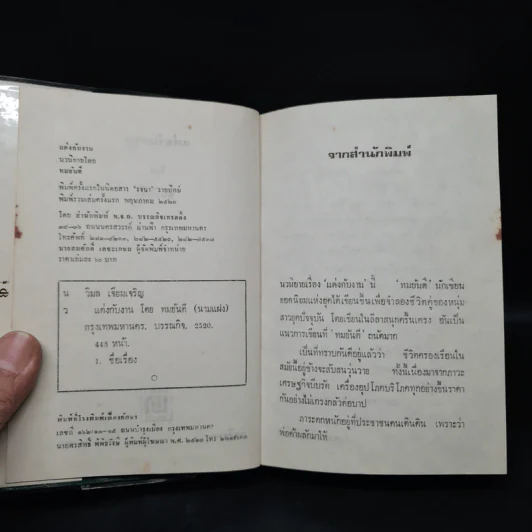 แต่งกับงาน
นวนิยายโดย
ทมยันตี
พิมพ์ครั้งแรกในนิตยสาร "รจนา" รายปักษ์
พิมพ์รวมเล่มครั้งแรก พฤษภาคม ๒๕๒๐
โดย สำนักพิมพ์ บรรณกิจเทรดดิ้ง
ถนนนครสวรรค์ ผ่านฟ้า กรุงเทพมหานคร
โทรศัพท์
นายสมศักดิ์ เตชะเกษม ผู้จัดพิมพ์จำหน่าย
ราคาเล่มละ ๖๐ บาท
น วิมล เจียมเจริญ
ว แต่งกับงาน โดย ทมยันตี (นามแฝง)
กรุงเทพมหานคร, บรรณกิจ, 2520.
448 หน้า.
1. ชื่อเรื่อง
พิมพ์ที่โรงพิมพ์
เลขที่ ถนนบำรุงเมือง กรุงเทพมหานคร
ผู้พิมพ์ผู้โฆษณา พ.ศ. ๒๕๒๐ โทร
จากสำนักพิมพ์
นวนิยายเรื่อง 'แต่งกับงาน' นี้ 'ทมยันตี' นักเขียน
ยอดนิยมแห่งยุคได้เขียนขึ้นเพื่อจำลองชีวิตคู่ของหนุ่ม
สาวยุคปัจจุบัน โดยเขียนในลีลาสนุกครื้นเครง อันเป็น
แนวการเขียนที่ 'ทมยันตี' ถนัดมาก
เป็นที่ทราบกันดีอยู่แล้วว่า ชีวิตครองเรือนใน
สมัยนี้อยู่ข้างจะสับสนวุ่นวาย ทั้งนี้เนื่องมาจากภาวะ
เศรษฐกิจบีบรัด เครื่องอุปโภคบริโภคทุกอย่างขึ้นราคา
กันอย่างไม่เกรงกลัวต่อบาป
ภาระตกหนักอยู่ที่ประชาชนคนเดินดิน เพราะว่า
พ่อค้าผลักมาให้